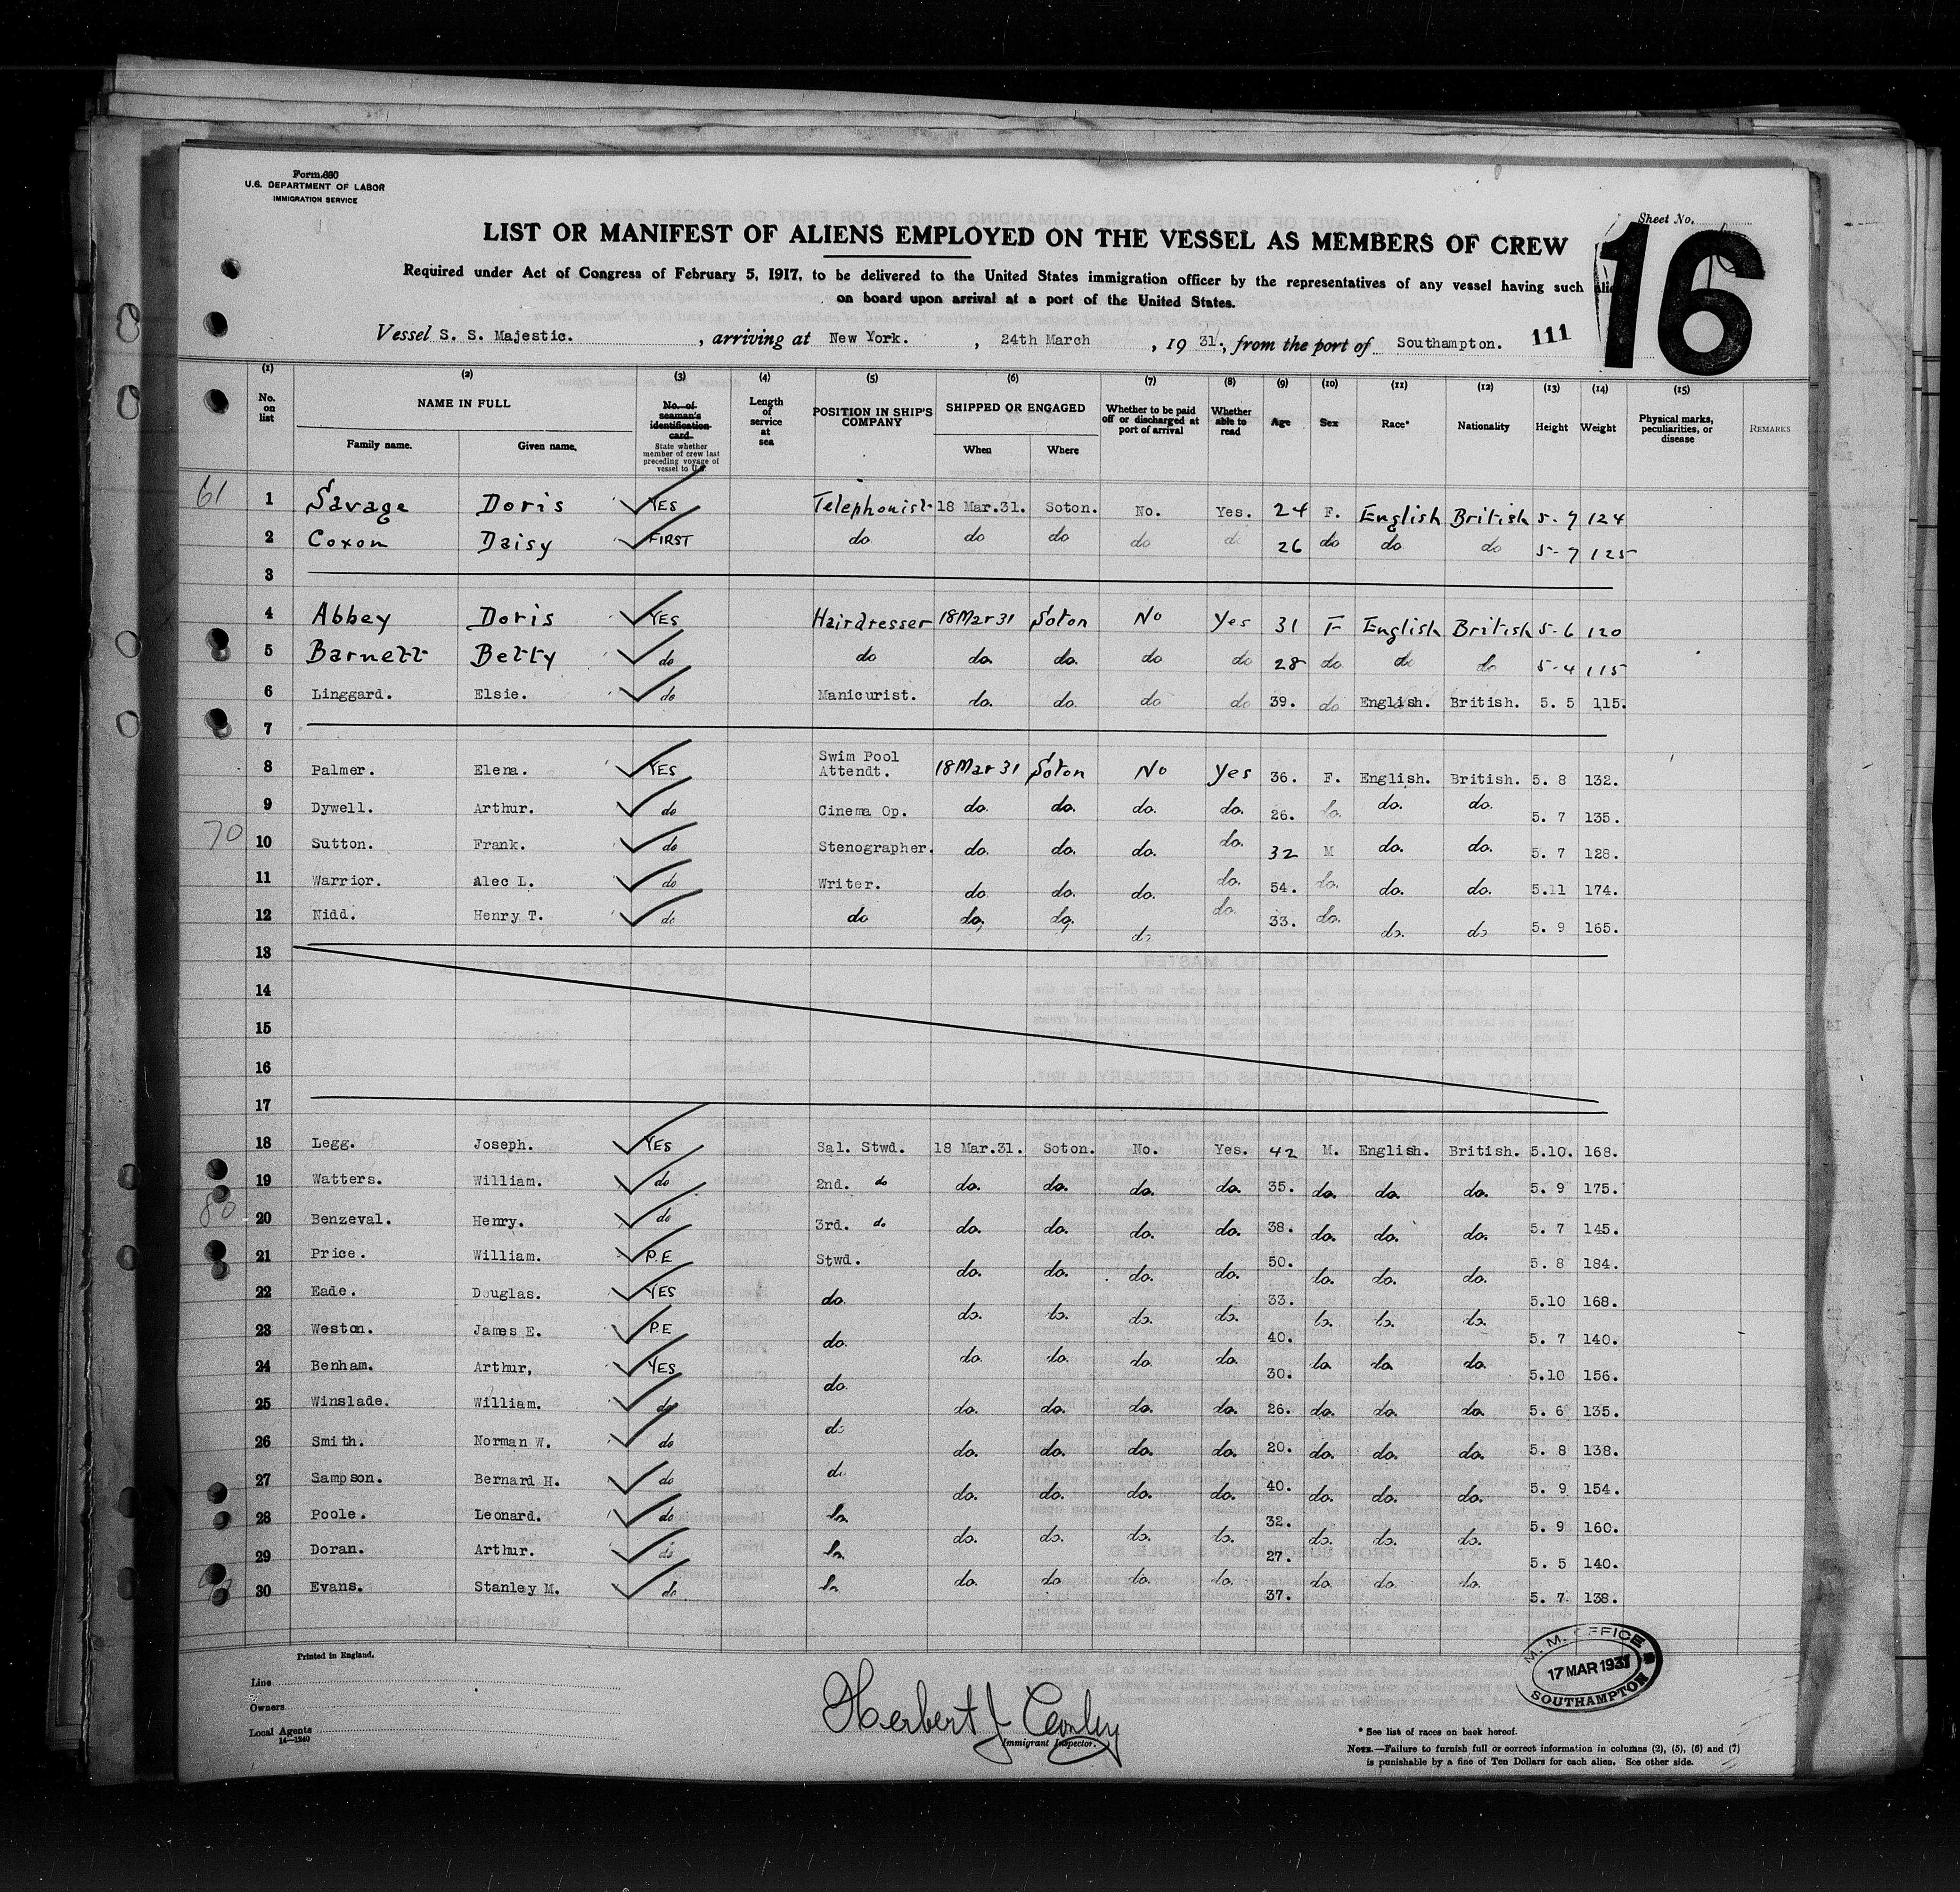 Form 680
U.S. DEPARTMENT OF LABOR
IMMIGRATION SERVICE
Sheet No.
16
LIST OR MANIFEST OF ALIENS EMPLOYED ON THE VESSEL AS MEMBERS OF CREW
Required under Act of Congress of February 5, 1917, to be delivered to the United States immigration officer by the representatives of any vessel having such
on board upon arrival at a port of the United States.
Vessel S. S. Majestic. , arriving at New York. , 24th March , 19 31., from the port of Southampton. 111
(1) (2) (3) (4) (5) (6) (7) (8) (9) (10) (11) (12) (13) (14) (15)
No. on list NAME IN FULL Family name. Given name. No. of seaman's identification card. State whether member of crew last preceding voyage of vessel to U.S. Length of service at sea POSITION IN SHIP'S COMPANY SHIPPED OR ENGAGED When Where Whether to be paid off or discharged at port of arrival Whether able to read Age Sex Race* Nationality Height Weight Physical marks, peculiarities, or disease REMARKS
61 1 Savage Doris YES Telephonist 18 Mar.31. Soton. No. Yes. 24 F. English British 5-7 124
2 Coxon Daisy FIRST do do do do do 26 do do do 5-7 125
3
4 Abbey Doris YES Hairdresser 18 Mar 31 Soton No Yes 31 F English British 5-6 120
5 Barnett Betty do do do. do. do do 28 do do do 5-4 115
6 Linggard. Elsie. do Manicurist. do. do. do do 39. do English. British. 5. 5 115.
7
8 Palmer. Elena. YES Swim Pool Attendt. 18 Mar 31 Soton No Yes 36. F. English. British. 5. 8 132.
9 Dywell. Arthur. do Cinema Op. do. do. do. do. 26. do. do. do. 5. 7 135.
70 10 Sutton. Frank. do Stenographer. do. do. do. do. 32 M do. do. 5. 7 128.
11 Warrior. Alec L. do Writer. do. do. do. do. 54. do. do. do. 5.11 174.
12 Nidd. Henry T. do do do. do. do. do. 33. do. do. do 5. 9 165.
13
14
15
16
17
18 Legg. Joseph. YES Sal. Stwd. 18 Mar.31. Soton. No. Yes. 42 M. English. British. 5.10. 168.
19 Watters. William. do 2nd. do do. do. do. do. 35. do. do. do. 5. 9 175.
80 20 Benzeval. Henry. do 3rd. do do. do. do. do. 38. do. do. do. 5. 7 145.
21 Price. William. P.E Stwd. do. do. do. do. 50. do. do. do. 5. 8 184.
22 Eade. Douglas. YES do. do. do. do. do. 33. do. do. do. 5.10 168.
23 Weston. James E. P.E do. do. do. do. do. 40. do do do. 5. 7 140.
24 Benham. Arthur, YES do. do. do. do. do. 30. do. do. do. 5.10 156.
25 Winslade. William. do do do. do. do. do. 26. do. do. do. 5. 6 135.
26 Smith. Norman W. do do do. do. do. do. 20. do. do. do. 5. 8 138.
27 Sampson. Bernard H. do do. do. do. do. do. 40. do. do. do. 5. 9 154.
28 Poole. Leonard. do do. do. do. do. do. 32. do. do. do. 5. 9 160.
29 Doran. Arthur. do do. do. do do. do. 27. do. do. do. 5. 5 140.
30 Evans. Stanley M. do do 37. 5. 7. 138.
Printed in England.
Line
Owners
Local Agents
14—1240
Immigrant Inspector.
M. M. OFFICE
17 MAR 1931
SOUTHAMPTON
* See list of races on back hereof.
NOTE.—Failure to furnish full or correct information in columns (2), (5), (6) and (7)
is punishable by a fine of Ten Dollars for each alien. See other side.